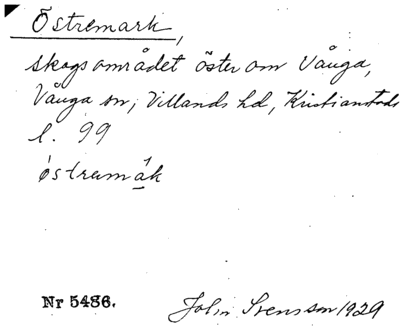 Östremark,
skogsområdet öster om Vånga,
Vånga sn, Villands hd, Kristianstads
l. 99
östremák
Nr 5486.
John Svensson 1929